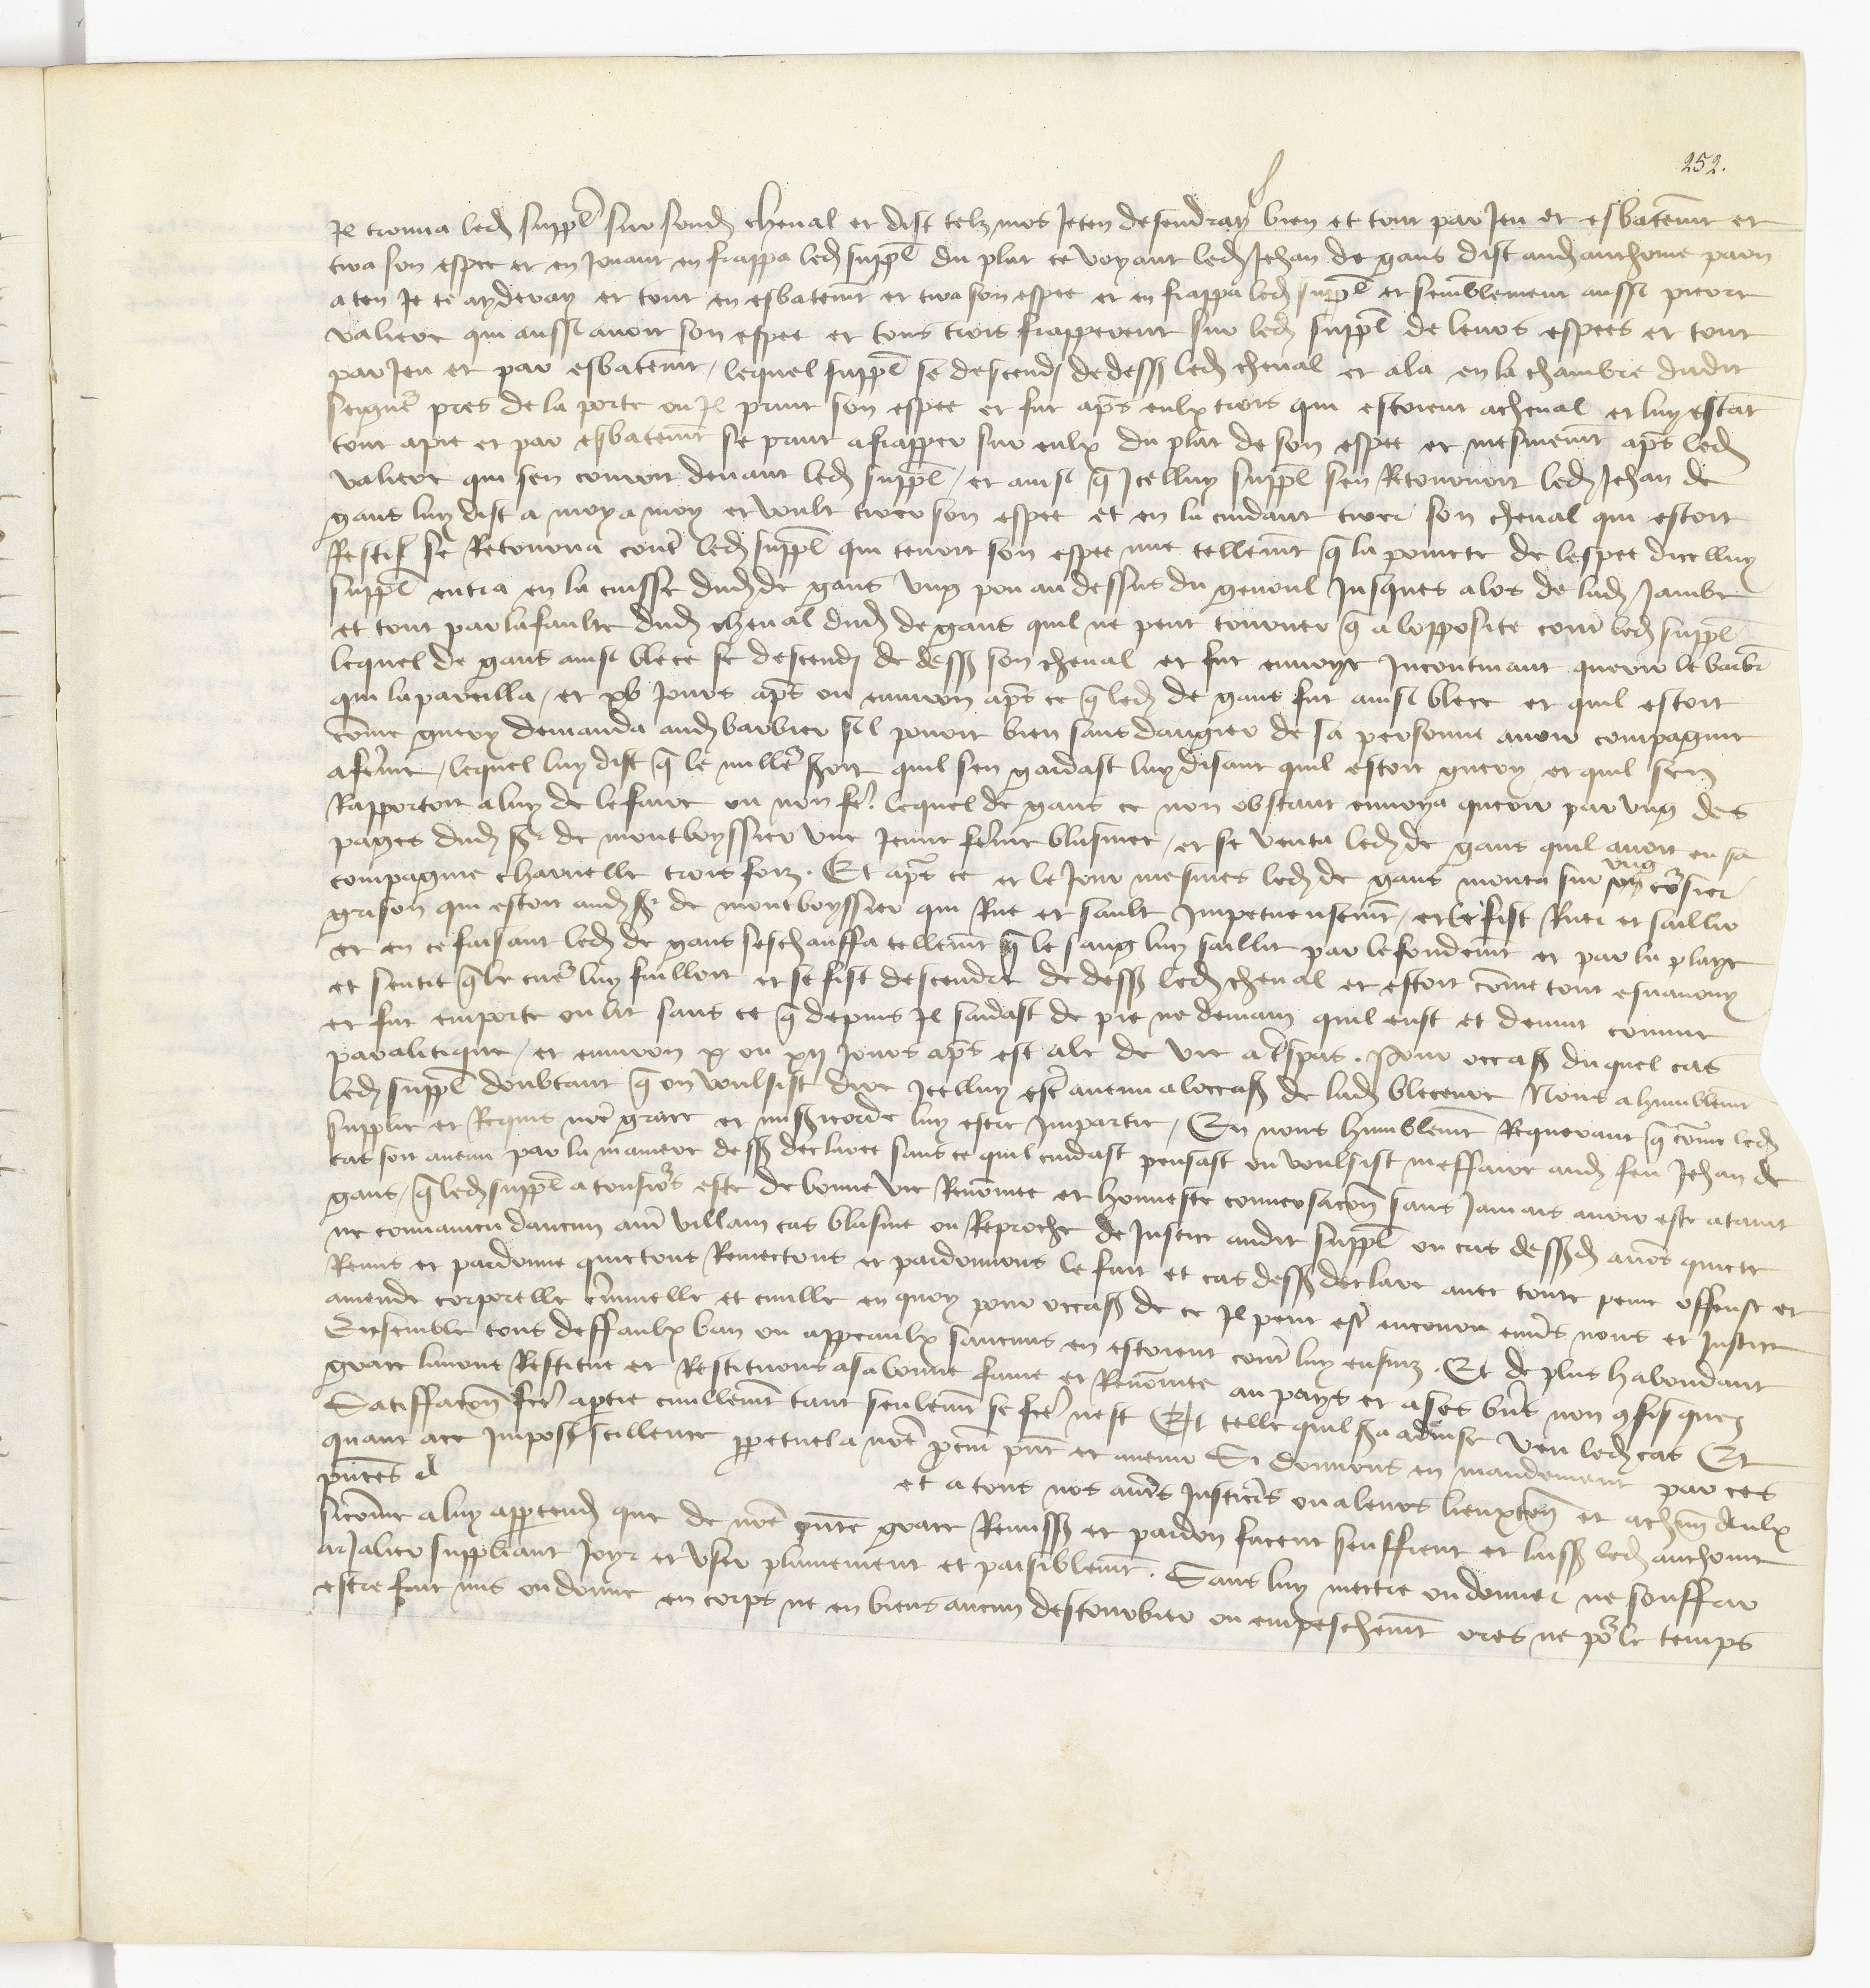 252.
Il trouva led suppl sur sond cheval et dist telz mos Jeten defendray bien et tout par Jeu et esbatemt et
tira son espee et en Jouant en frappa led suppl du plat ce voyant led Jehan de gans dist aud anthoine paon
aten Je te ayderay et tout en esbatemt et tira son espee et en frappa led suppl et semblement aussi picort
valiere qui aussi avoit son espee et tous trois frapperent sur led suppl de leurs espees et tout
par Jeu et par esbatemt / lequel suppl se descendi dedess led cheval et ala en la chambre dudit
seigner pres de la porte ou Il print son espee et fut apres eulx trois qui estoient acheval et luy estat
tout apie et par esbatemt se print afrapper sur eulx du plat de son espee et mesmemt apres led
valiere qui sen couroit devant led suppl / et ainsi q Icelluy suppl sen Retournoit led Jehan de
gans luy dist a moy a moy et voult tirer son espee et en la cuidant tirer son cheval qui estoit
Restif se Retourna contre led suppl qui tenoit son espee nue tellemt q la poincte de lespee dicelluy
suppl entra en la cuisse dud de gans ung pou au dessus du genoul Jusques alos de lad Jambe
et tout par la faulte dud cheval dud de gans quil ne peut tourner q a lopposite contre led suppl
lequel de gans ainsi blece se descendi de dess son cheval et fut envoye Incontinant querir le barbr
qui lapareilla / et xv Jours apres ou environ apres ce q led de gans fut ainsi blece et quil estoit
come guery demanda aud barbier sil pouoit bien sans dangier de sa personne avoir compagnie
afeme / lequel luy dist q le meilleur estoit quil sen gardast luy disant quil estoit guery et quil sen
Rapportoit a luy de le faire ou non fe. lequel de gans ce non obstant envoya querir par ung des
pages dud sr de montboyssier une Jeune feme blasmee / et se venta led de gans quil avoit eu sa
compagnie charnelle trois foiz. Et apres ce et le Jour mesmes led de gans monta sur ung coursier
grison qui estoit aud sr de montboyssier qui Rue et sault Impetueusemt / et le fist Ruer et saillir
et en ce faisant led de gans seschauffa tellemt q le sang luy saillit par le fondemt et par la playe
et sentit q le cuer luy failloit et se fist descendre de dess led cheval et estoit come tout esvanouy
et fut emporte ou lit sans ce q depuis Il saidast de pie ne demain quil eust et devint comme
paralitique / et environ x ou xii Jours apres est ale de vie atrespas. Pour occass duquel cas
led suppl doubtant q on voulsist dire Icelluy estre avenu aloccass de lad bleceure Nous a humblemt
supplie et Requis nre grace et misericorde luy estre Impartie / En nous humblemt Requerant q come led
cas soit avenu par la maniere dess declairee sans ce quil cuidast pensast ou voulsist meffaire aud feu Jehan de
gans / q led suppl a tousiours este de bonne vie Renomee et honneste conversacon sans Jamais avoir este ataint
ne convaincu daucun autre villain cas blasme ou Reproche de Justice audit suppl ou cas dessd avons quicte
Remis et pardonne quictons Remectons et pardonnons le fait et cas dess declaire avec toute peine offense et
amende corporelle crimnelle et civille en quoy pour occass de ce Il peut estre encouru envers nous et Justice
Ensemble tous deffaulx ban ou appeaulx saucuns en estoient contre luy ensuiz. Et de plus habondant
grace lavons Restitue et Restituons asa bonne fame et Renomee au pays et a ses biens non 9fisquez
Satiffacon fce aptie civillemt tant seulemt se fce nest Et telle quil sera advise veu led cas Et
quant ace Imposs scillence perpetuel a nre procur pnt et avenir Si donnons en mandement par ces
pntes a et a tous nos autres Justiciers ou a leurs lieuxten et achun deulx
sicome a luy appartend que de nre pnte grace Remiss et pardon facent seuffrent et laiss led anthoine
arJalier suppliant Joyr et User plainement et paisiblemt. Sans luy mectre ou donner ne souffrir
estre fait mis ou donne en corps ne en biens aucun destourbier ou empeschemt ores ne pour le temps